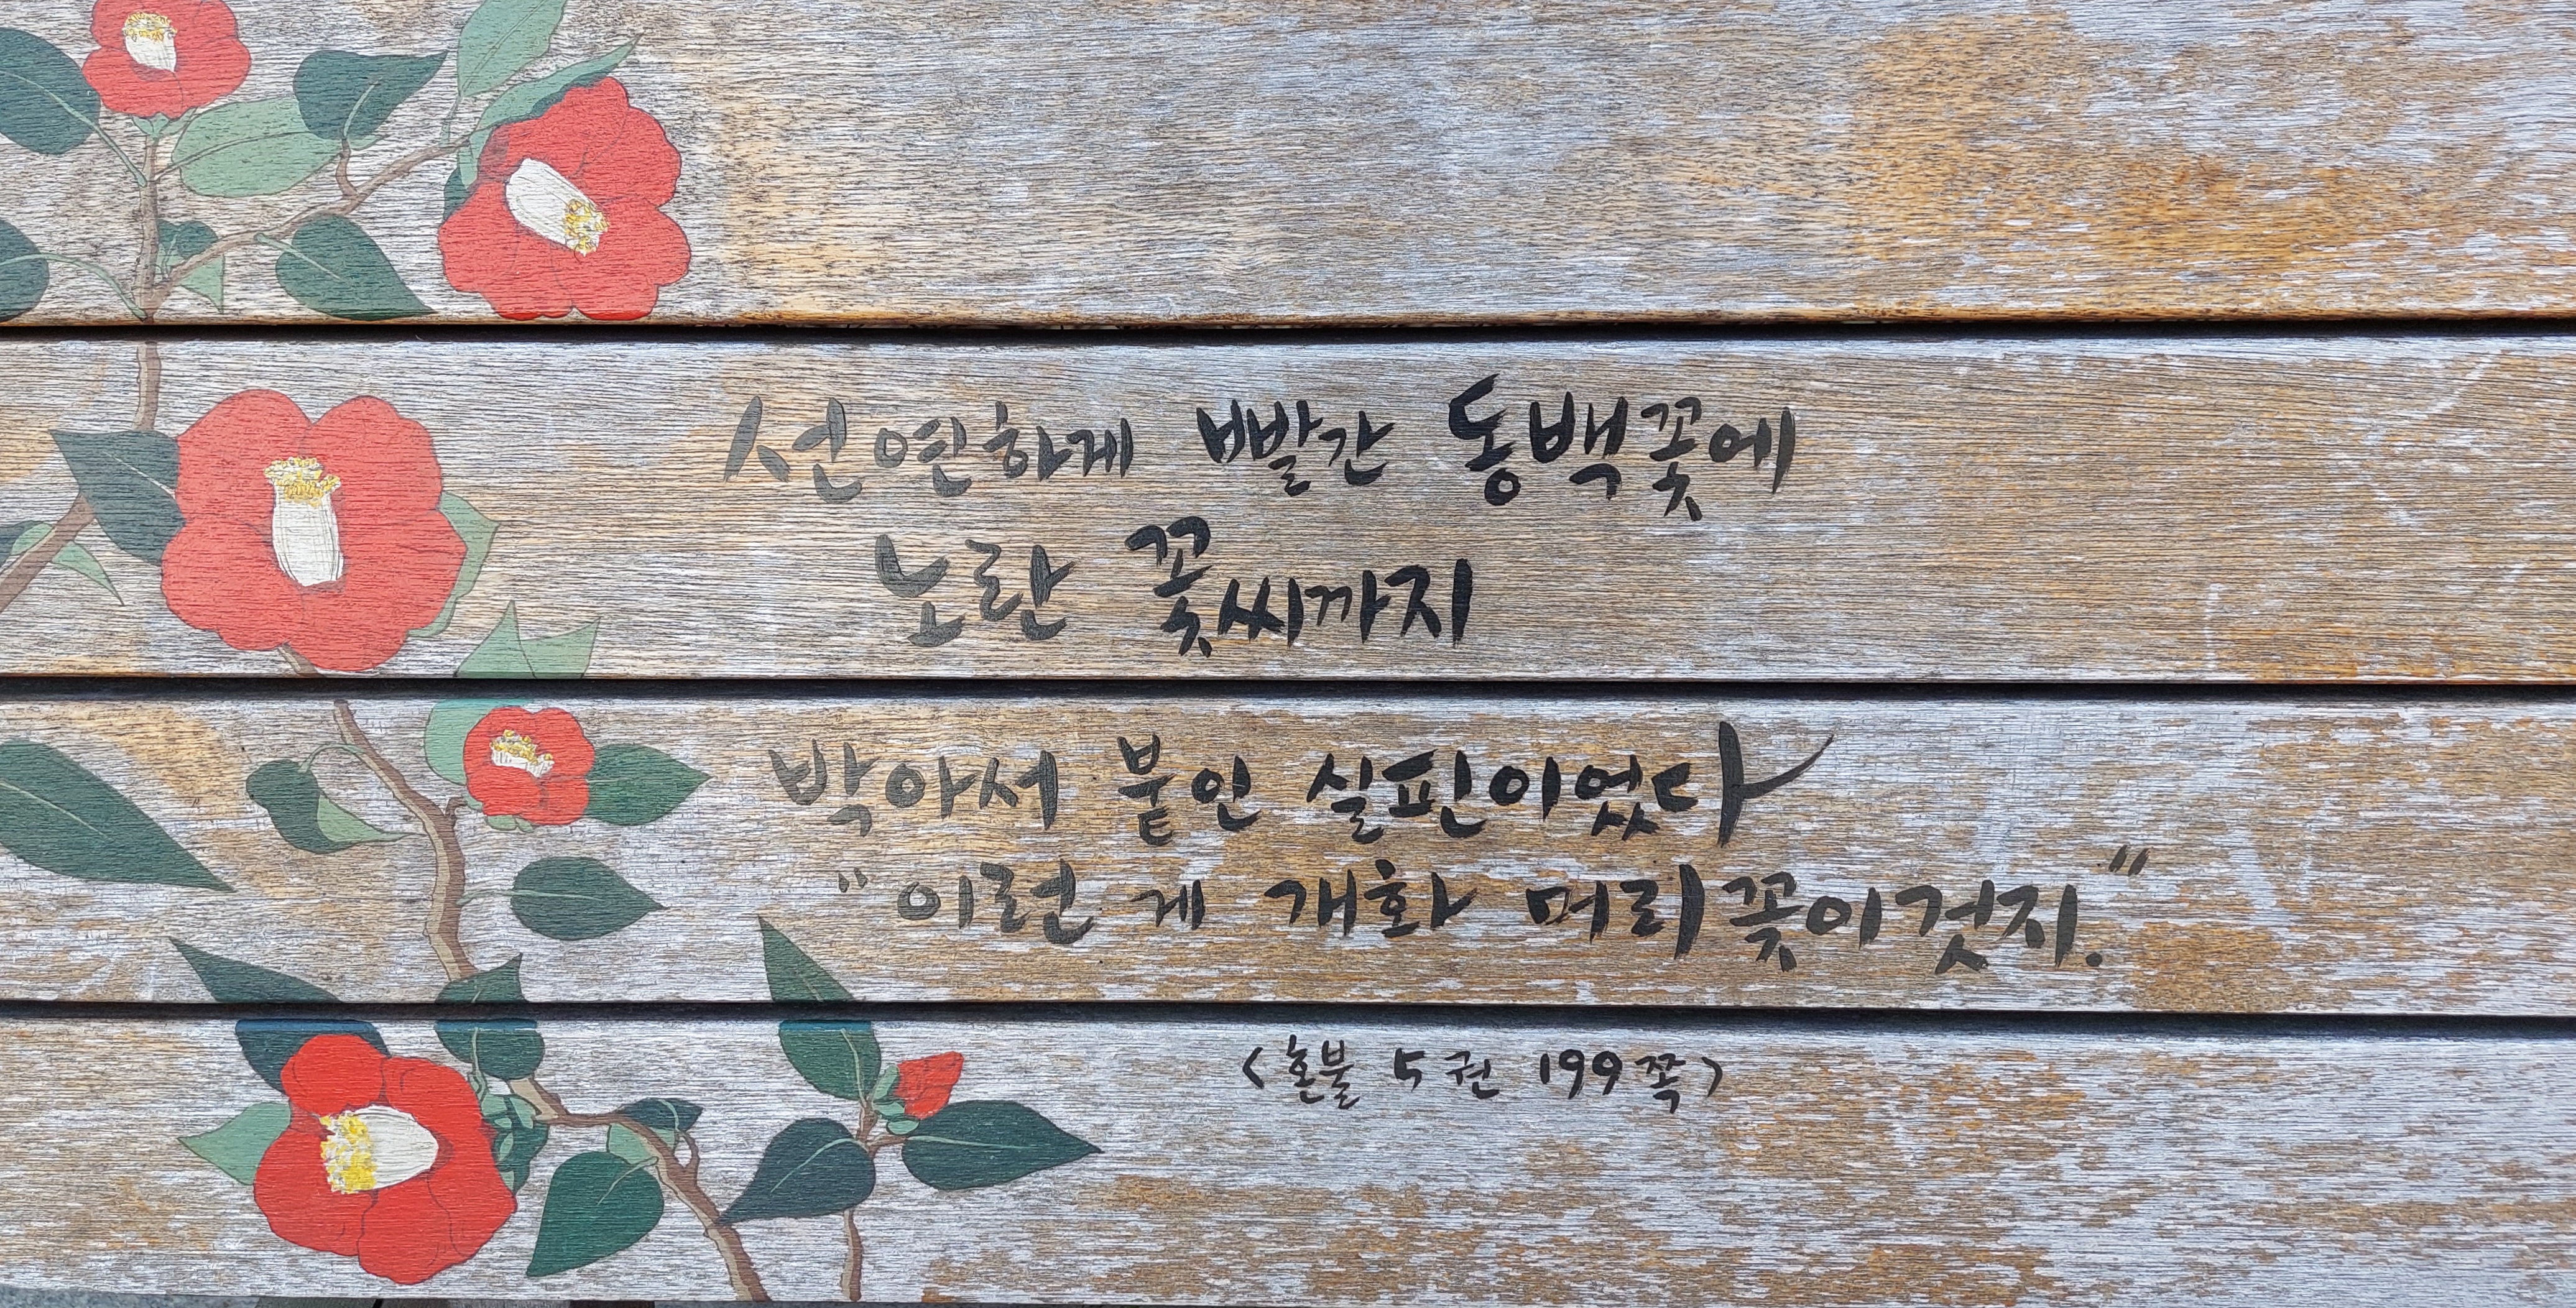 선연하게 빨간 동백꽃에
노란 꽃씨까지
박아서 붙인 실핀이었다
"이런 게 개화 머리꽃이것지."
<혼불 5권 199쪽>